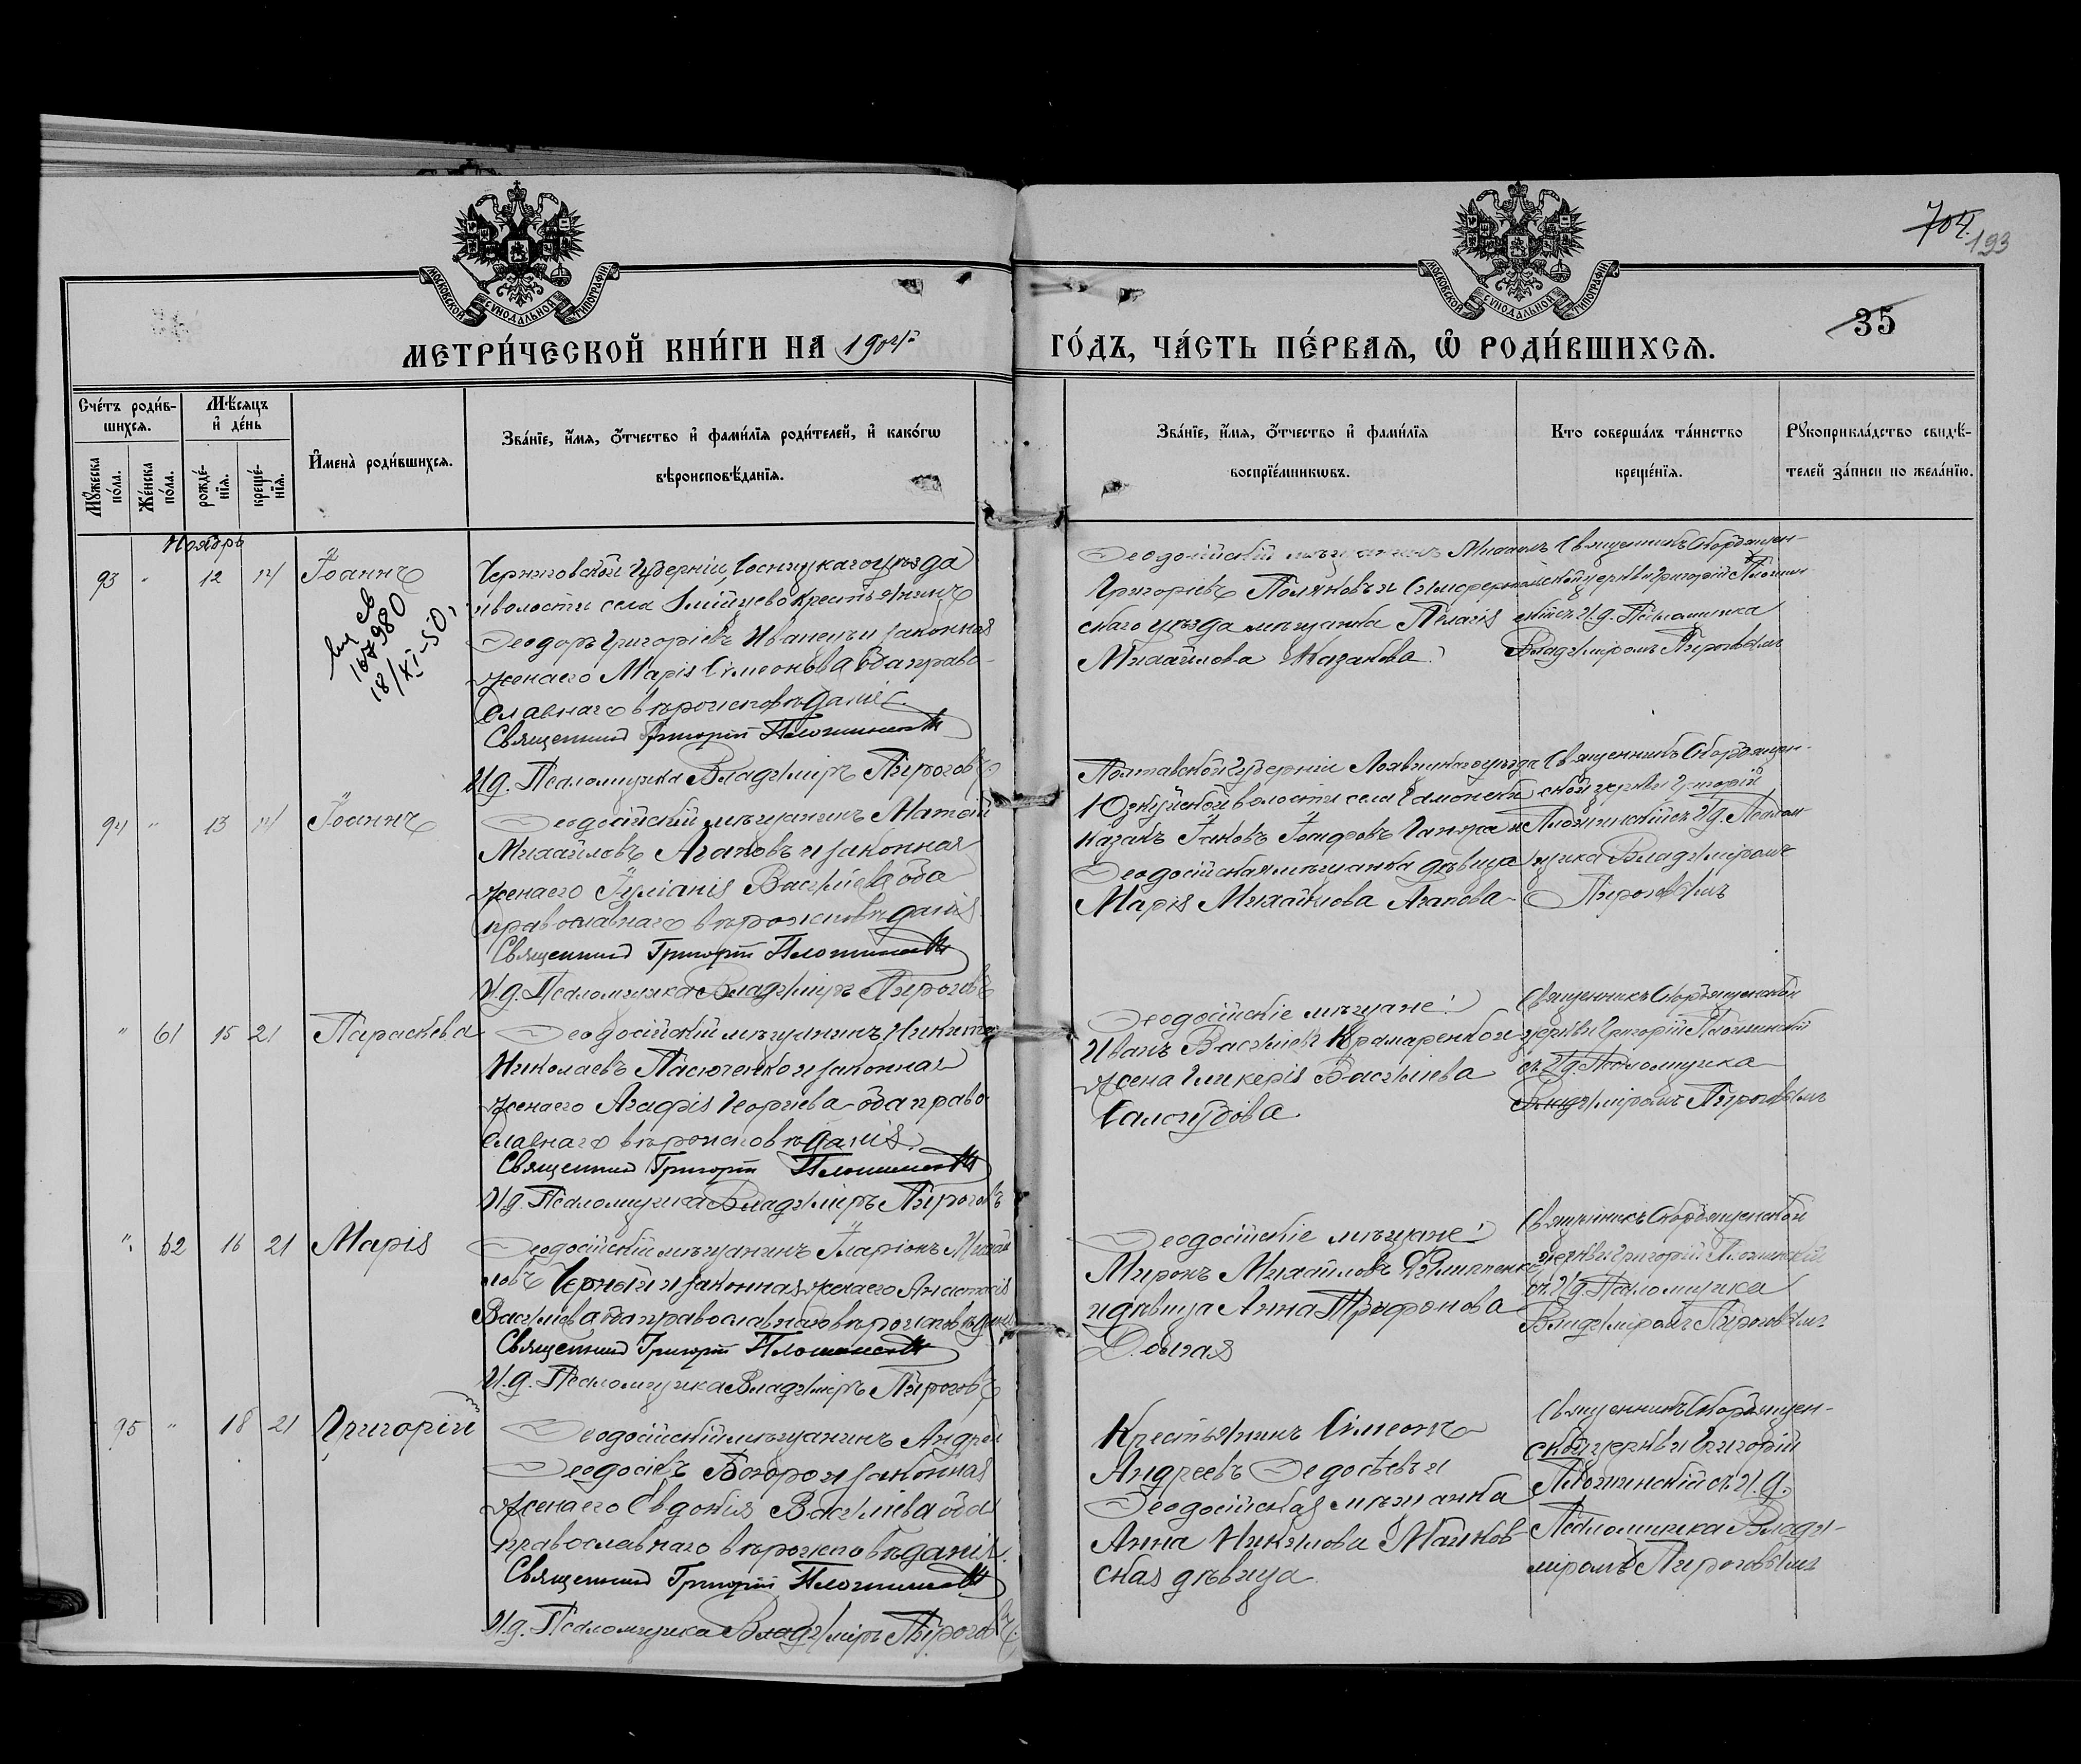 704.
193
МОСКОВСКОЙ СѴНОДАЛЬНОЙ ТИПОГРАФІИ
МОСКОВСКОЙ СѴНОДАЛЬНОЙ ТИПОГРАФІИ
35
МЕТРИ́ЧЕСКОЙ КНИ́ГИ НА 1904
ГО́ДЪ, ЧА́СТЬ ПЕ́РВАѦ, Ѡ҆ РОДИ́ВШИХСѦ.
Сче́тъ роди́в-
шихсѧ.
Мѣ́сѧцъ
и҆ де́нь
Мꙋ́жеска
по́ла.
Же́нска
по́ла.
рожде́-
нїѧ.
креще́-
нїѧ.
И҆мена̀ роди́вшихсѧ.
Зва́нїе, и҆́мѧ, ѻ҆́тчество и҆ фами́лїѧ роди́телей, и҆ како́гѡ
вѣроисповѣ́данїѧ.
Зва́нїе, и҆́мѧ, ѻ҆́тчество и҆ фами́лїѧ
воспрїе́мникѡвъ.
Кто соверша́лъ та́инство
креще́нїѧ.
Рꙋкоприкла́дство свидѣ́-
телей за́писи по жела́нїю.
Ноябрь
93 " 12 14 Іоаннъ
167980
18/XI-50.
Черниговской Губерніи, Сосницкаго уѣзда
волости села крестьянинъ
Ѳеодоръ Григоріевъ Иванецъ и законная
жена его Марія Сѵмеонова оба право-
славнаго вѣроисповѣданія.
Священникъ Григорій
И.д. Псаломщика Владиміръ Пироговъ
Ѳеодосійскій мѣщанинъ Михаилъ
Григорьевъ Поляковъ и Симферополь-
скаго уѣзда мѣщанка Пелагія
Михайлова Казакова.
Священникъ Скорбящен-
ской церкви Григорій
съ И.д. Псаломщика
Владиміромъ Пироговымъ
94 " 13 14 Іоаннъ
Ѳеодосійскій мѣщанинъ Матѳій
Михайловъ Агаповъ и законная
жена его Іуліанія Васильева оба
православнаго вѣроисповѣданія
Священникъ Григорій
И.д. Псаломщика Владиміръ Пироговъ
Полтавской Губерніи уѣзда
волости села
казакъ Іаковъ и
Ѳеодосійская мѣщанка дѣвица
Марія Михайлова Агапова
Священникъ Скорбящен-
ской церкви Григорій
съ И.д. Псалом-
щика Владиміромъ
Пироговымъ
" 61 15 21 Параскева
Ѳеодосійскій мѣщанинъ Никита
Николаевъ и законная
жена его Агафія Георгіева оба право
славнаго вѣроисповѣданія
Священникъ Григорій
И.д. Псаломщика Владиміръ Пироговъ
Ѳеодосійскіе мѣщане:
Иванъ Васильевъ Крамаренко и
жена Гликерія Васильева
Священникъ Скорбященской
церкви Григорій
съ И.д. Псаломщика
Владиміромъ Пироговымъ
" 62 16 21 Марія
Ѳеодосійскій мѣщанинъ Иларіонъ Михай
ловъ Черный и законная жена его Анастасія
Васильева оба православнаго вѣроисповѣданія
Священникъ Григорій
И.д. Псаломщика Владиміръ Пироговъ
Ѳеодосійскіе мѣщане:
Миронъ Михайловъ Филипенко
и дѣвица Анна Трифонова
Священникъ Скорбященской
церкви Григорій
съ И.д. Псаломщика
Владиміромъ Пироговымъ
95 " 18 21 Григорій
Ѳеодосійскій мѣщанинъ Андрей
Ѳеодосіевъ и законная
жена его Евдокія Васильева оба
православнаго вѣроисповѣданія.
Священникъ Григорій
И.д. Псаломщика Владиміръ Пироговъ
Крестьянинъ Сѵмеонъ
Андреевъ Ѳедосѣевъ и
Ѳеодосійская мѣщанка
Анна Никилова Маньков-
ская дѣвица.
Священникъ Скорбящен-
ской церкви Григорій
съ И.д.
Псаломщика Влади-
міромъ Пироговымъ